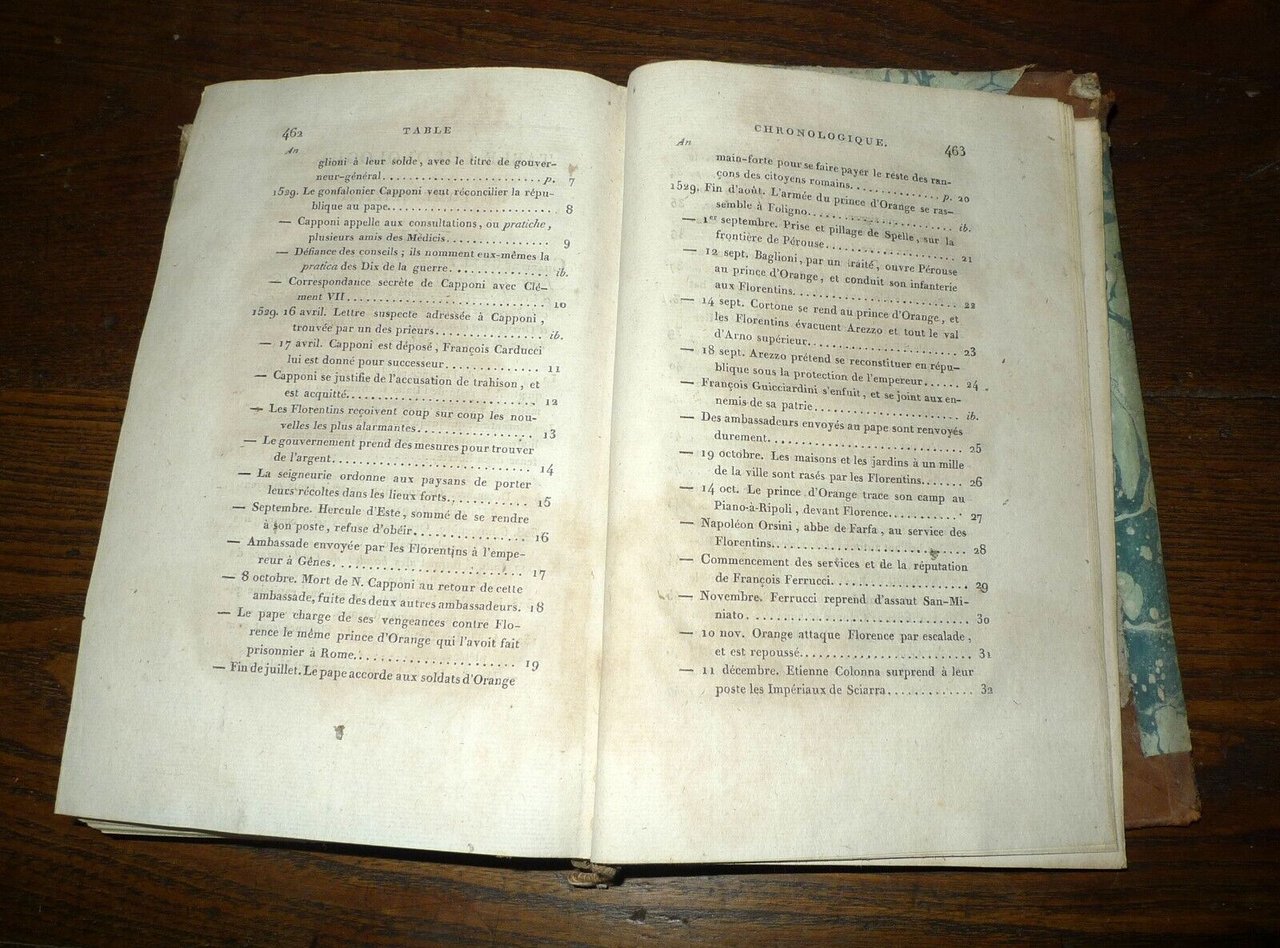 462 TABLE
An
glioni à leur solde, avec le titre de gouver-
neur-général........................p. 7
1529. Le gonfalonier Capponi veut réconcilier la répu-
blique au pape........................ 8
— Capponi appelle aux consultations, ou pratiche,
plusieurs amis des Médicis............... 9
— Défiance des conseils; ils nomment eux-mêmes la
pratica des Dix de la guerre.............. ib.
— Correspondance secrète de Capponi avec Clé-
ment VII........................... 10
1529. 16 avril. Lettre suspecte adressée à Capponi,
trouvée par un des prieurs................ ib.
— 17 avril. Capponi est déposé, François Carducci
lui est donné pour successeur............. 11
— Capponi se justifie de l'accusation de trahison, et
est acquitté........................... 12
— Les Florentins reçoivent coup sur coup les nou-
velles les plus alarmantes................ 13
— Le gouvernement prend des mesures pour trouver
de l'argent........................... 14
— La seigneurie ordonne aux paysans de porter
leurs récoltes dans les lieux forts............ 15
— Septembre. Hercule d'Este, sommé de se rendre
à son poste, refuse d'obéir................ 16
— Ambassade envoyée par les Florentins à l'empe-
reur à Gênes........................... 17
— 8 octobre. Mort de N. Capponi au retour de cette
ambassade, fuite des deux autres ambassadeurs. 18
— Le pape charge de ses vengeances contre Flo-
rence le même prince d'Orange qui l'avoit fait
prisonnier à Rome....................... 19
— Fin de juillet. Le pape accorde aux soldats d'Orange
CHRONOLOGIQUE. 463
An
main-forte pour se faire payer le reste des ran-
çons des citoyens romains.............. p. 20
1529. Fin d'août. L'armée du prince d'Orange se ras-
semble à Foligno..................... ib.
— 1er septembre. Prise et pillage de Spelle, sur la
frontière de Pérouse................... 21
— 12 sept. Baglioni, par un traité, ouvre Pérouse
au prince d'Orange, et conduit son infanterie
aux Florentins........................ 22
— 14 sept. Cortone se rend au prince d'Orange, et
les Florentins évacuent Arezzo et tout le val
d'Arno supérieur...................... 23
— 18 sept. Arezzo prétend se reconstituer en répu-
blique sous la protection de l'empereur...... 24
— François Guicciardini s'enfuit, et se joint aux en-
nemis de sa patrie..................... ib.
— Des ambassadeurs envoyés au pape sont renvoyés
durement............................ 25
— 19 octobre. Les maisons et les jardins à un mille
de la ville sont rasés par les Florentins....... 26
— 14 oct. Le prince d'Orange trace son camp au
Piano-à-Ripoli, devant Florence........... 27
— Napoléon Orsini, abbe de Farfa, au service des
Florentins........................... 28
— Commencement des services et de la réputation
de François Ferrucci................... 29
— Novembre. Ferrucci reprend d'assaut San-Mi-
niato .............................. 30
— 10 nov. Orange attaque Florence par escalade,
et est repoussé........................ 31
— 11 décembre. Etienne Colonna surprend à leur
poste les Impériaux de Sciarra............. 32